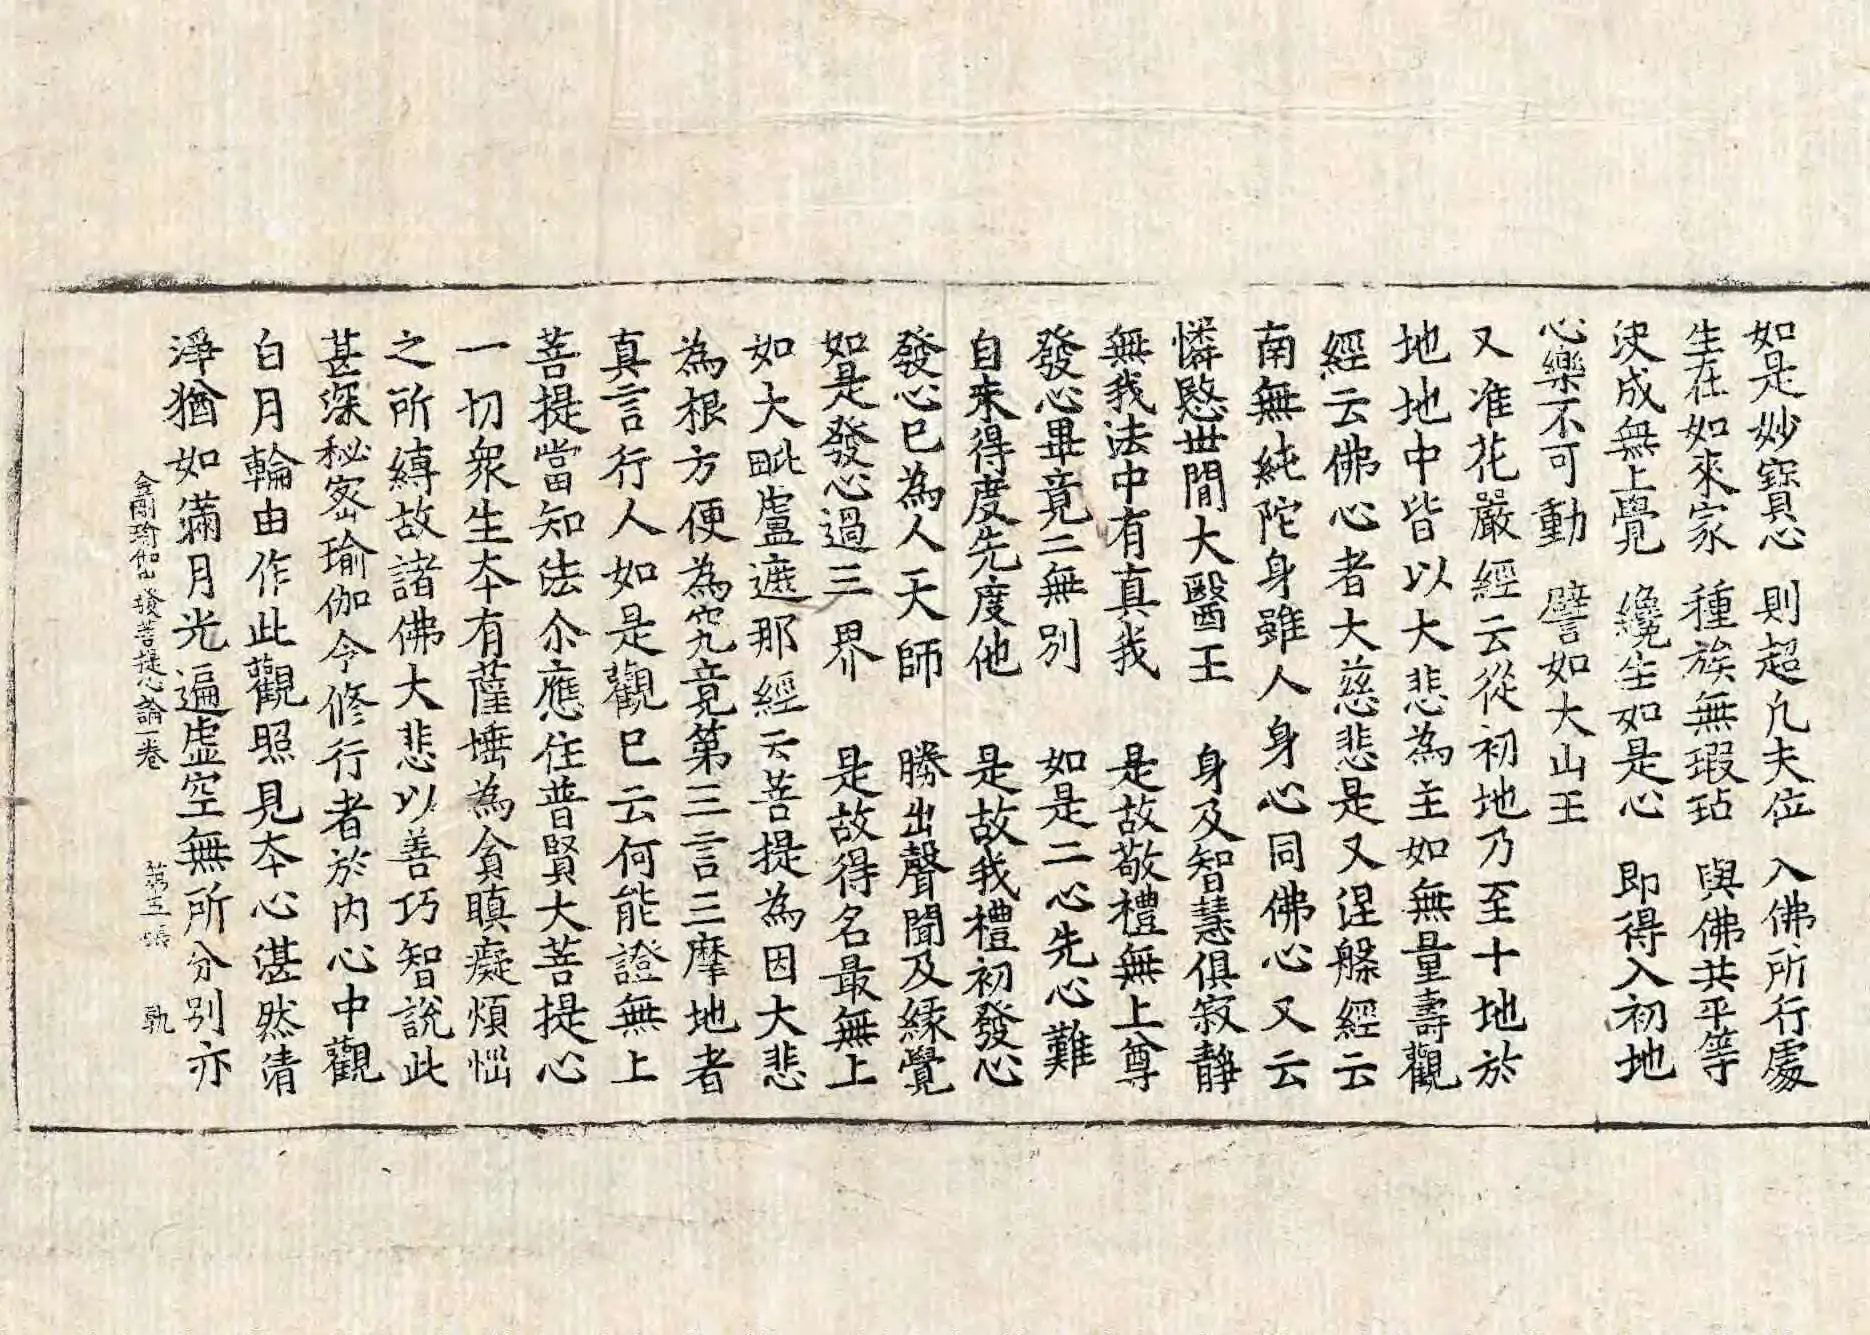 如是妙寶心　則超凢夫位　入佛所行處
生在如來家　種族無瑕玷　與佛共平等
決成無上覺　纔生如是心　即得入初地
心樂不可動　譬如大山王
又准花嚴經云從初地乃至十地於
地地中皆以大悲為主如無量壽觀
經云佛心者大慈悲是又涅槃經云
南無純陀身雖人身心同佛心又云
憐愍世間大醫王　身及智慧俱寂靜
無我法中有真我　是故敬禮無上尊
發心畢竟二無別　如是二心先心難
自未得度先度他　是故我禮初發心
發心已為人天師　勝出聲聞及緣覺
如是發心過三界　是故得名最無上
如大毗盧遮那經云菩提為因大悲
為根方便為究竟第三言三摩地者
真言行人如是觀已云何能證無上
菩提當知法尒應住普賢大菩提心
一切衆生夲有薩埵為貪瞋癡煩惱
之所縛故諸佛大悲以善巧智說此
甚深秘密瑜伽令修行者於內心中觀
白月輪由作此觀照見夲心湛然清
淨猶如滿月光遍虛空無所分別亦
金剛瑜伽發菩提心論一卷　第五張　執